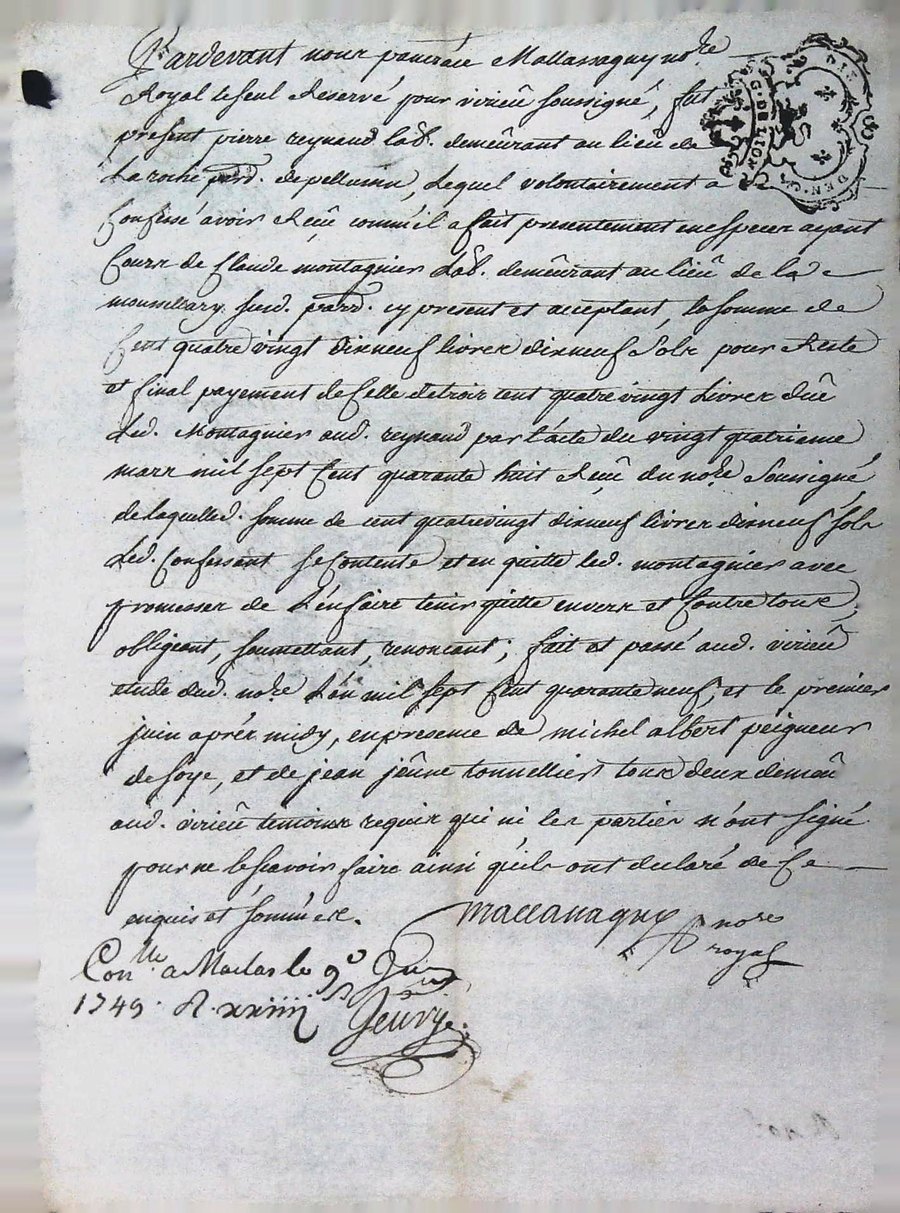 Pardevant nous pancrace Mallassagny no.re
Royal le seul Reservé pour virieu soussigné, fut
present pierre reynaud lab.r demeûrant au lieu de
La roche parr. de pellussin, Lequel volontairement a
Confessé avoir Receu comm'il a fait presentement en especes ayant
Cours de Claude montagnier Lab.r demeûrant au lieu de la
susd. parr. cy present et acceptant, la somme de
Cent quatre vingt dixneuf livres dixneuf Sols pour Reste
et final payement de Celle de trois cent quatre vingt Livres duë
Led. Montagnier aud. reynaud par l'acte du vingt quatrieme
mars mil sept Cent quarante huit Receu du no.re Soussigné
de laquelled. somme de cent quatrevingt dixneuf livres dixneuf sols
Led. Confessant se Contente et en quitte led. montagnier avec
promesses de L'en faire tenir quitte envers et Contre tous,
obligeant, soumettant, renoncant; fait et passé aud. virieu
etude dud. no.re L'an mil sept Cent quarante neuf, et le premier
juin aprés midy, en presence de michel albert peigneur
de soye, et de jean jeûne tonnellier tous deux demeû
aud. virieu temoins requis qui ni les parties n'ont signé
pour ne le scavoir faire ainsi qu'ils ont declaré de Ce
enquis et sommées.
Mallassagny no.re
royal
Con.lle a Maclas le 9e Juin
1749. R. xxiiii s
G. DE LION